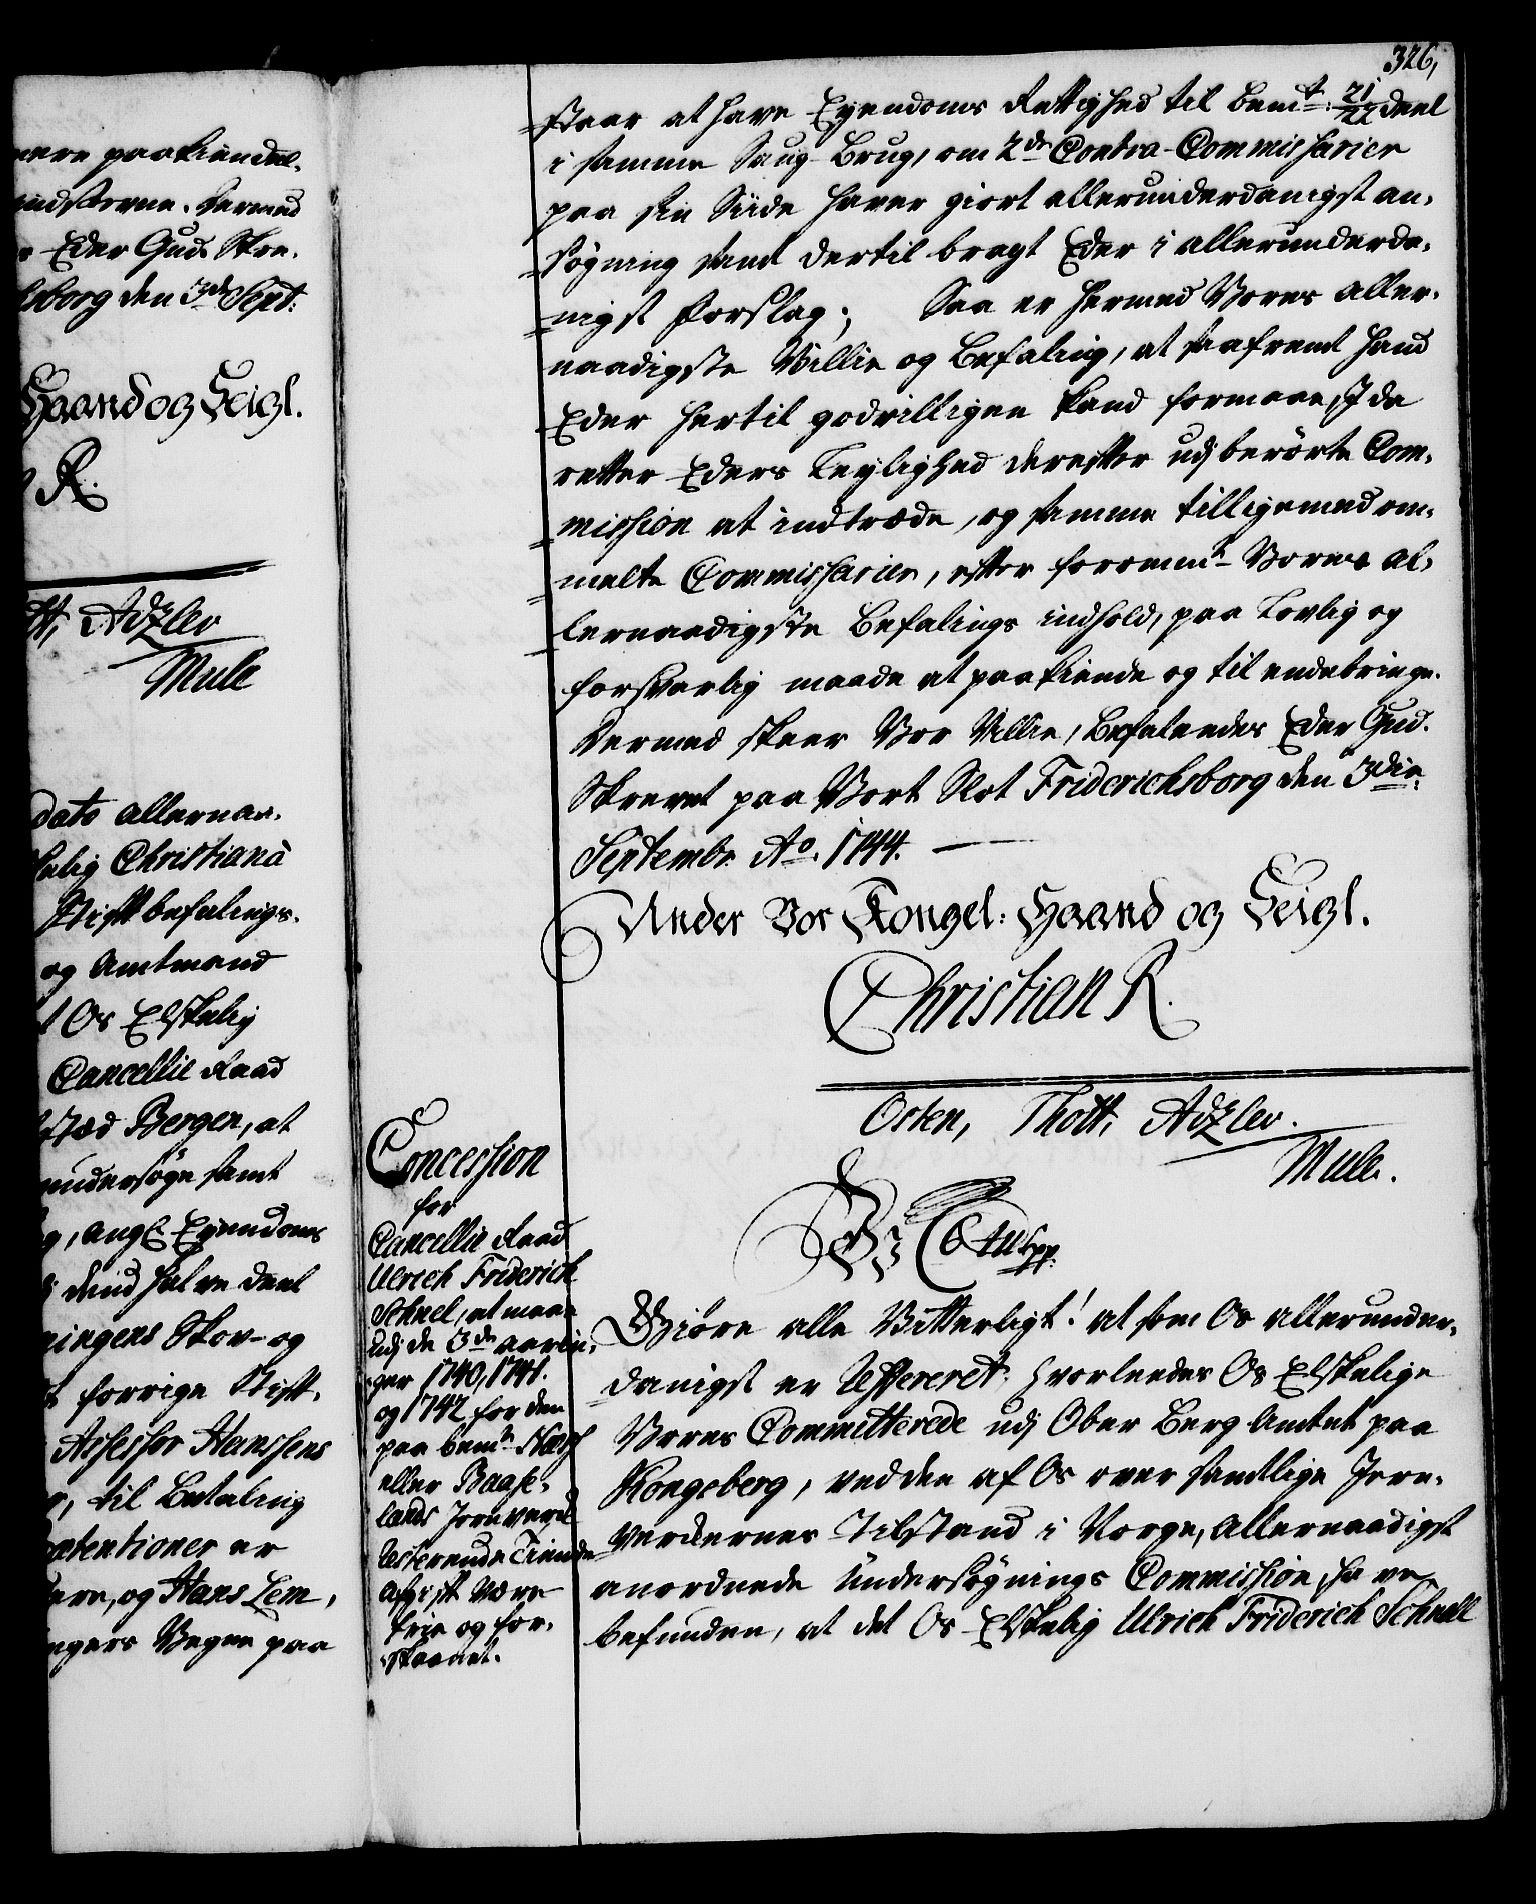 326,
nere paakiendel.
indstevne. Dermed
Eder Gud. Skre.
sborg den 3de Sept:
Haand og Seigl.
R.
tt, Adzlev
Mule
dato allernaa.
Elskelig Christian à
Stiftbefalings.
og Amtmand
Os Elskelig
Cancellie Raad
Stæd Bergen, at
undersøge samt
g, angl. Eyendoms
dend halve deel
ningens Skov- og
forrige Stift.
Assessor Hanssens
r, til Betaling
prætentioner er
ere, og Hans Lem,
ngers Vegne paa
staar at have Eyendoms Rettighed til bemt: 21/22 deel
i samme Saug-Brug, om 2de Contra-Commissarier
paa sin Siide haver giort allerunderdanigst an,
søgning samt dertil bragt Eder i allerunderda,
nigst forslag; Saa er hermed Vores aller,
naadigste Villie og Befaling, at saafremt hand
Eder hertil godvilligen kand formaae, I da
retter Eders Leylighed derefter udj berørte Com,
mission at indtræde, og samme tilligemed om,
melte Commissarier, efter forommte Vores al,
lernaadigste Befalings indhold, paa Lovlig og
forsvarlig maade at paakiende og til endebringe.
Dermed skeer Vor Villie, Befalendes Eder Gud.
Skrevet paa Vort Slot Friderichsborg den 3die
Septembr: Ao. 1744.
Under Vor Kongel: Haand og Seigl.
Christian R.
Osten, Thott, Adzlev.
Mule.
Concession
for
Cancellie Raad
Ulrich Friderich
Schnel, at maae
udj de 3de aarin,
ger 1740, 1741.
og 1742 for den
paa bemte Næs
eller Baase,
lands Jernverk
resterende Tiende
afgift være
frie og for,
skaanet.
Wi C 6tus pp.
Giøre alle Vitterligt! at som Os allerunder,
danigst er Refereret, hvorledes Os Elskelige
Vores Committerede udj Ober Berg Amtet paa
Kongsberg, ved den af Os over samtlige Jern,
Verckernes Tilstand i Norge, allernaadigst
anordnede Undersøgnings Commission, have
befunden, at det Os Elskelig Ulrich Friderich Schnell